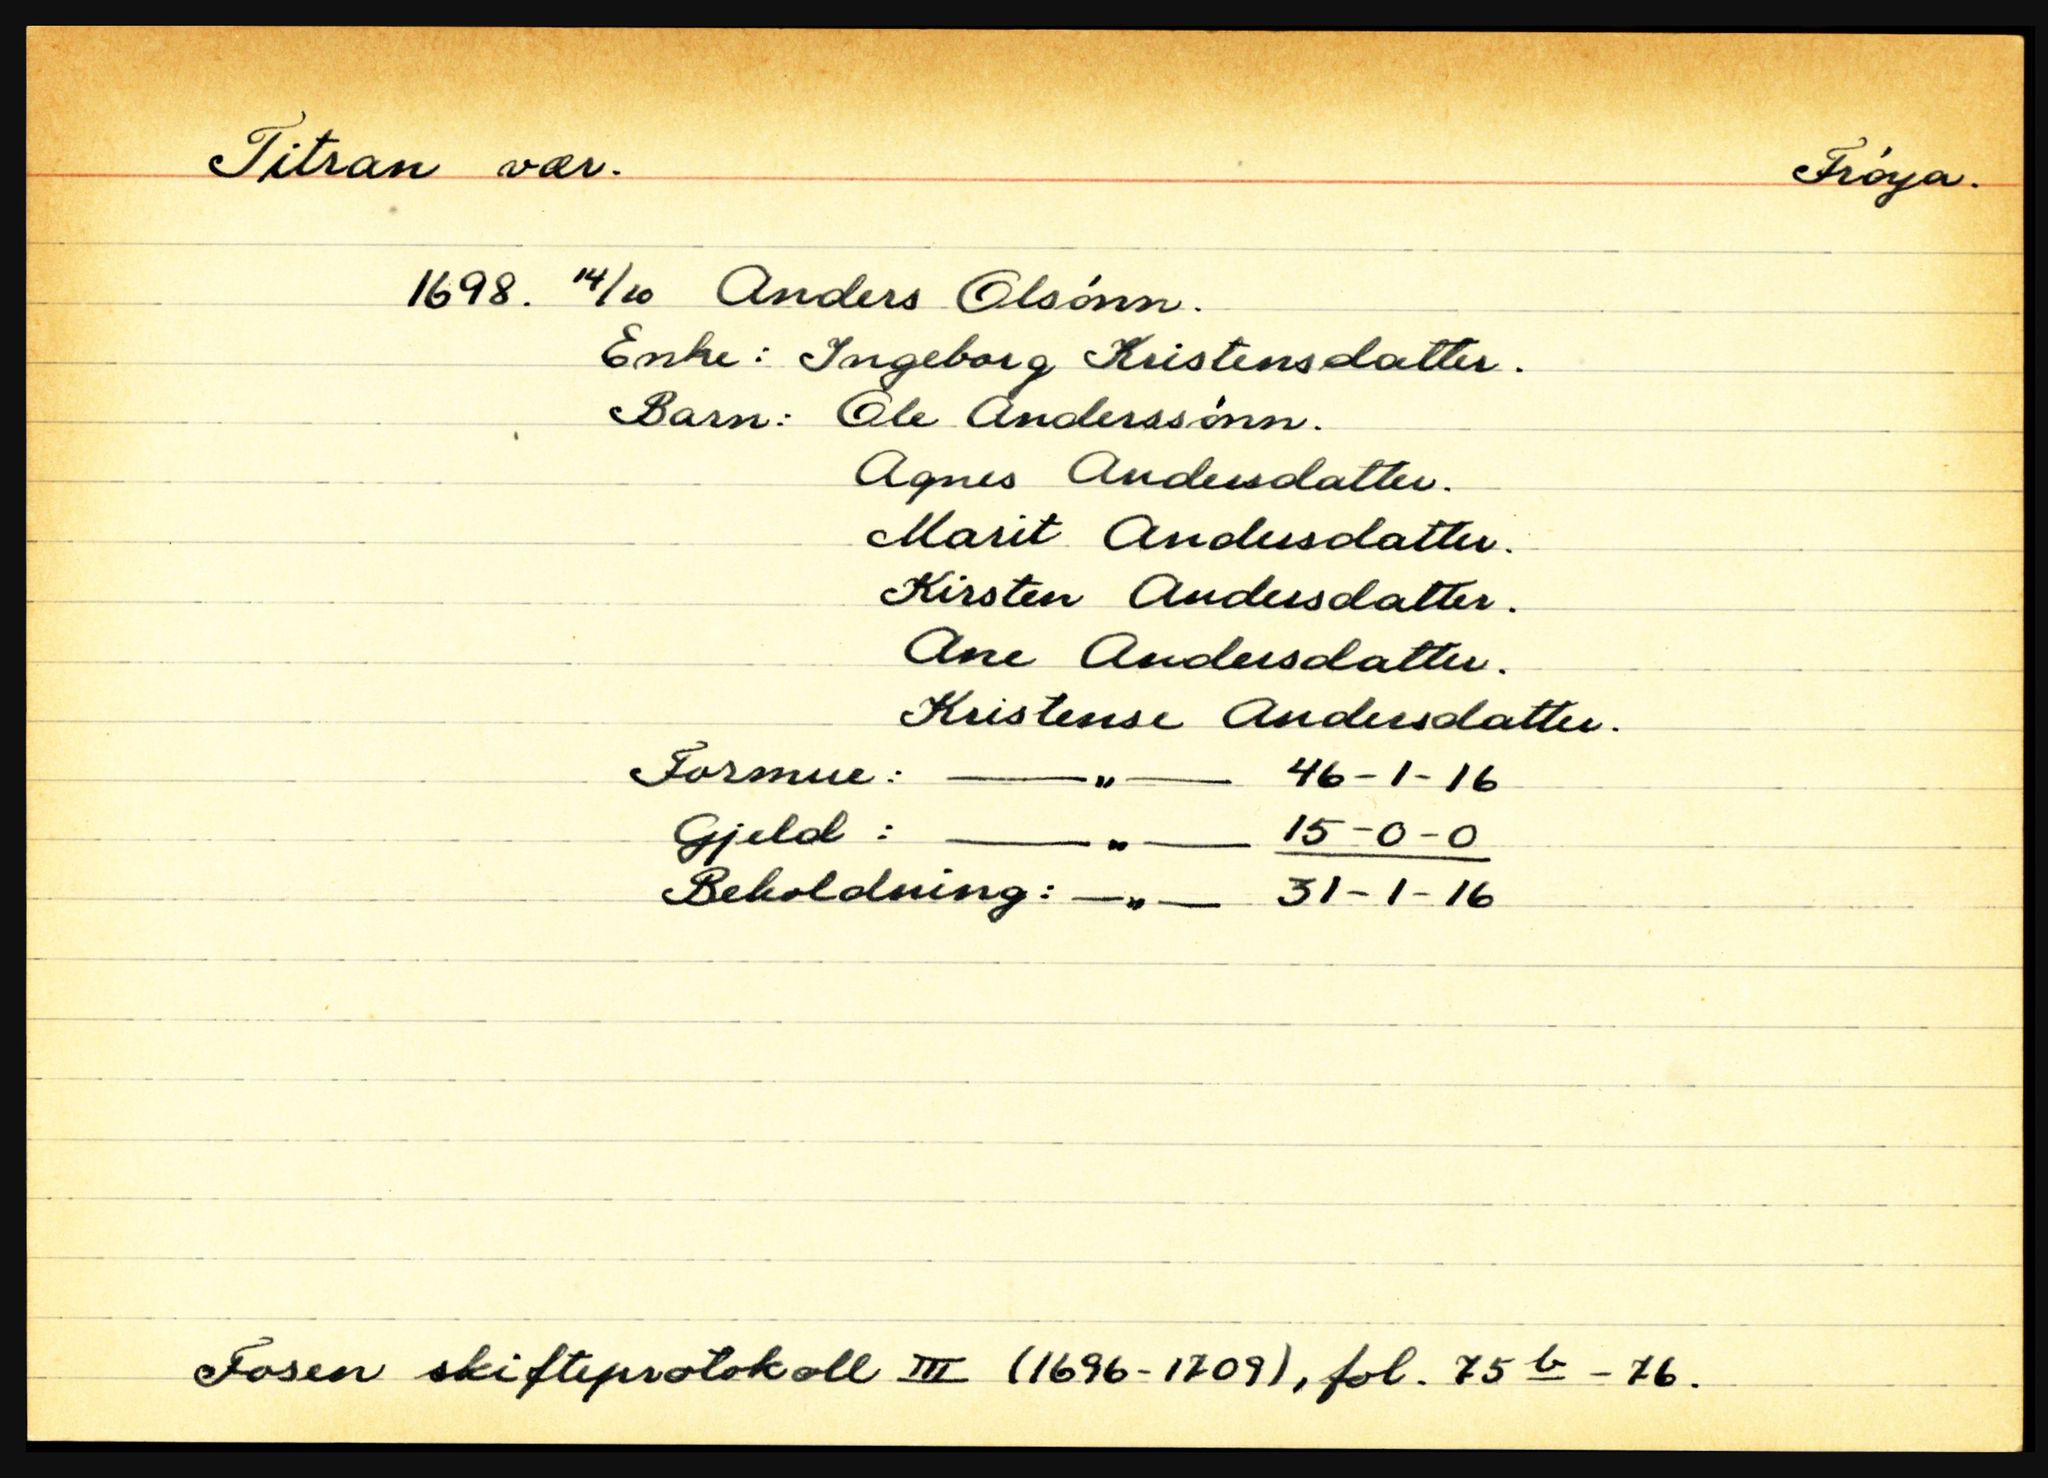 Titran vær. Frøya.
1698. 14/10 Anders Olsønn.
Enke: Ingeborg Kristensdatter.
Barn: Ole Anderssønn.
Agnes Andersdatter.
Marit Andersdatter.
Kirsten Andersdatter.
Ane Andersdatter.
Kristense Andersdatter.
Formue: —"— 46-1-16
Gjeld: —"— 15-0-0
Beholdning: —"— 31-1-16
Fosen skifteprotokoll III (1696-1709), fol. 75 b - 76.